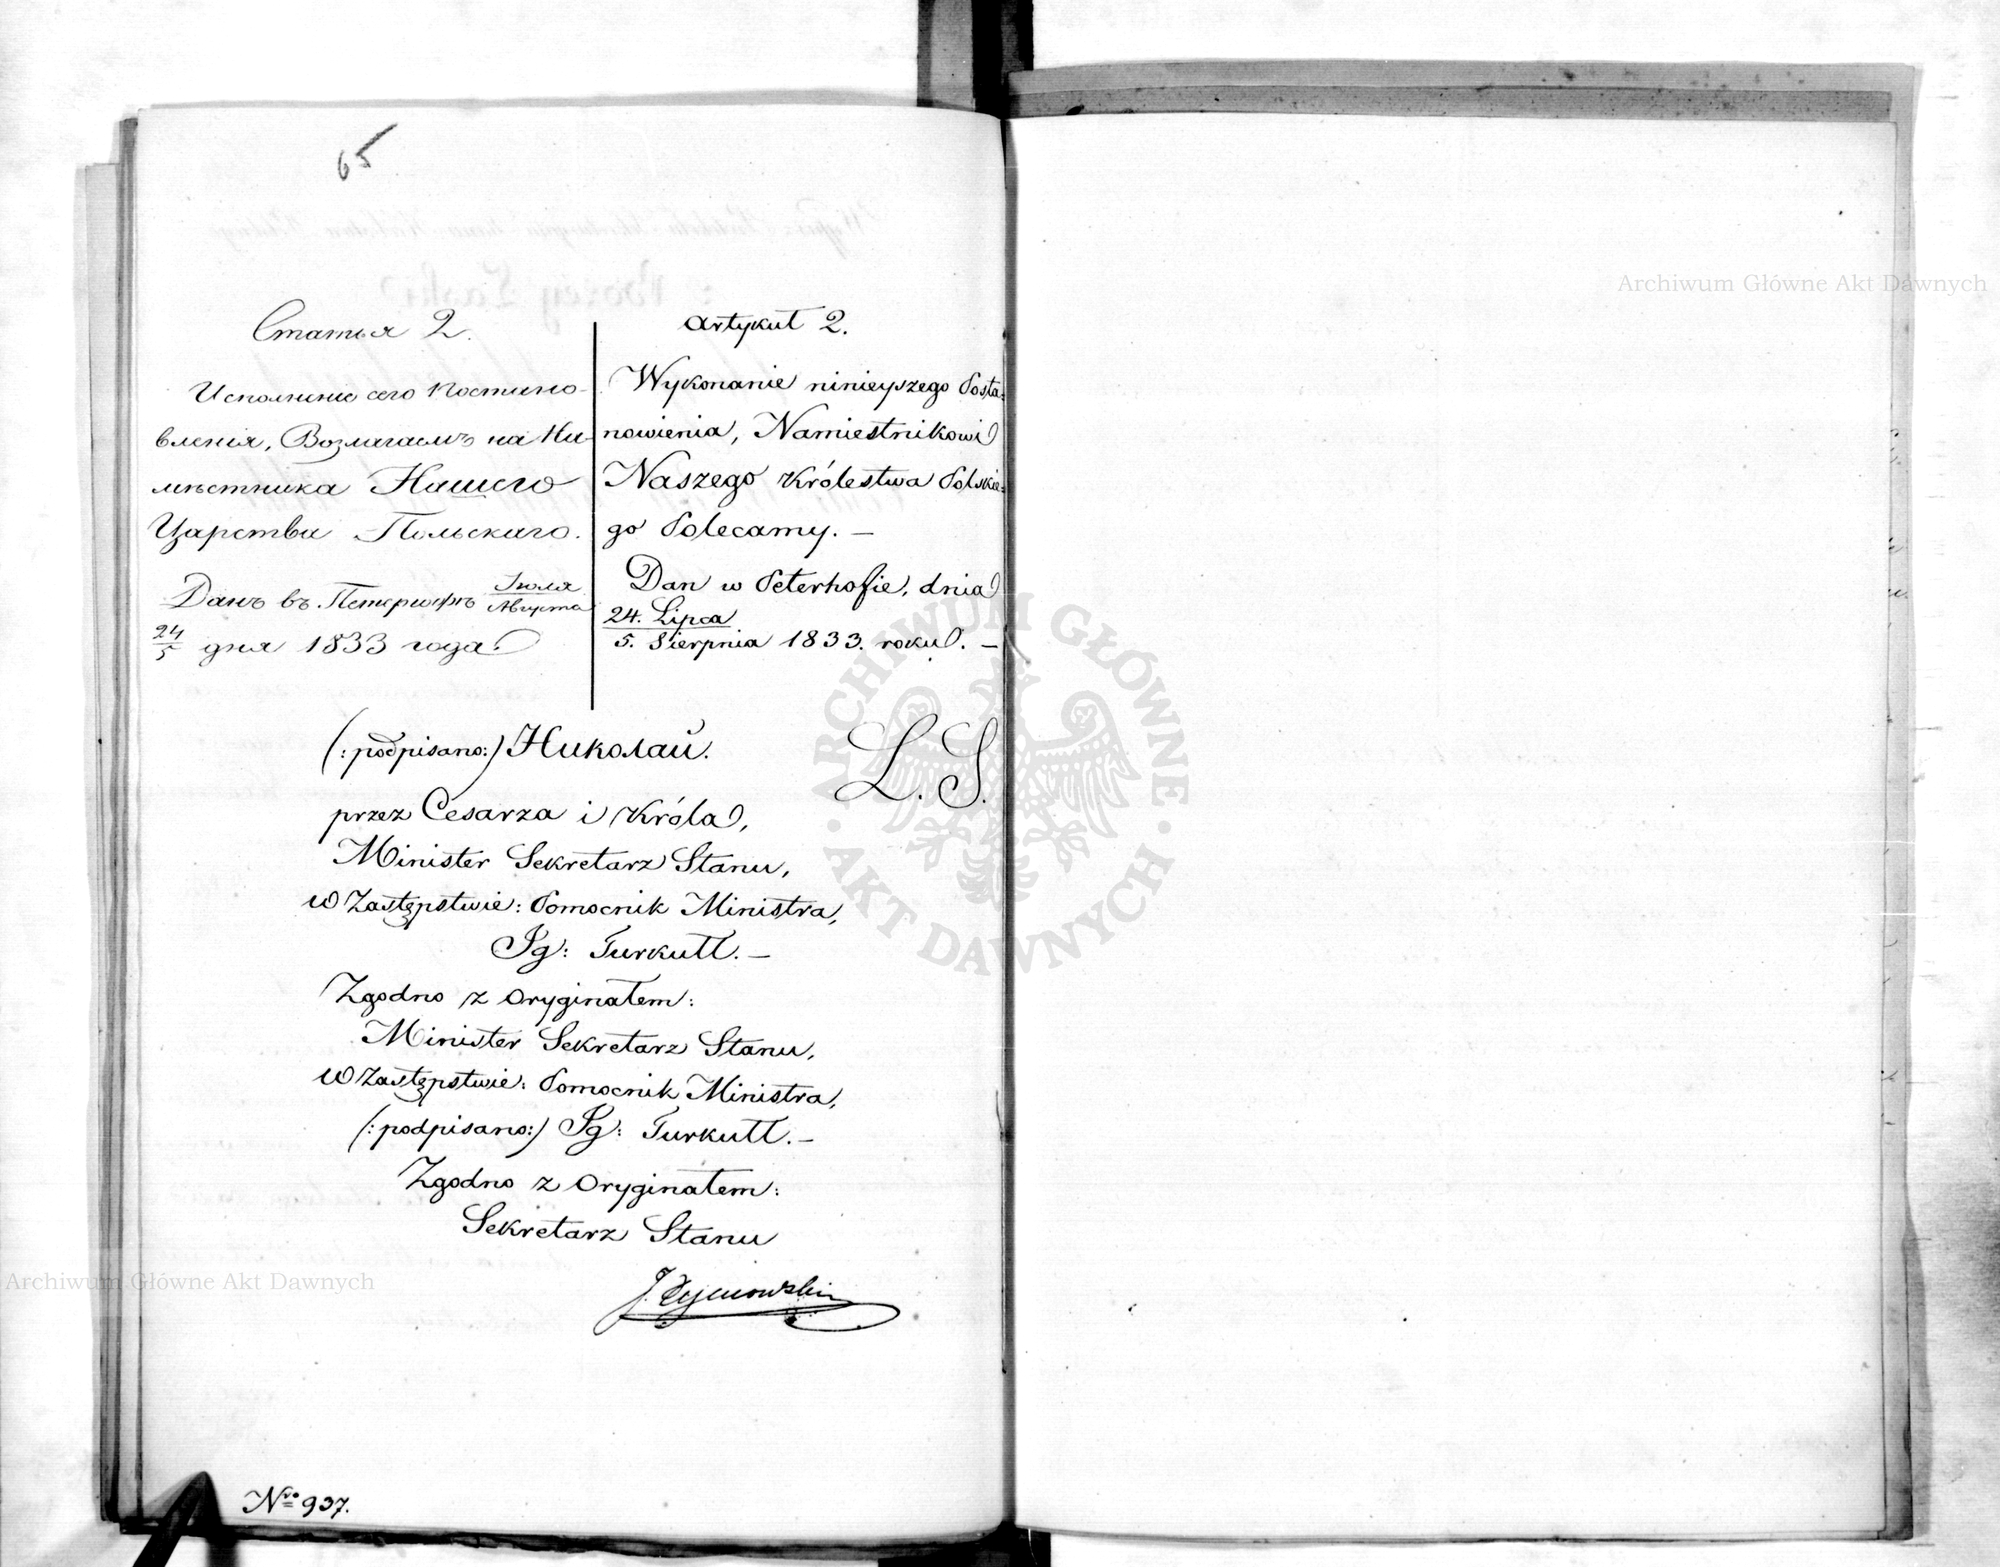 65
Статья 2.
Исполненіе сего Постано-
вленія, Возлагаемъ на На-
мѣстника Нашего
Царства Польскаго.
Данъ въ Петергофѣ Іюля
Августа
24
5 дня 1833 года.
Artykuł 2.
Wykonanie ninieyszego Posta=
nowienia, Namiestnikowi
Naszego Królestwa Polskie=
go Polecamy. —
Dan w Peterhofie, dnia
24. Lipca
5. Sierpnia 1833. roku. —
(:podpisano:) Николай.
L. S.
przez Cesarza i Króla,
Minister Sekretarz Stanu,
w Zastępstwie: Pomocnik Ministra,
Ig: Turkułł. —
Zgodno z Oryginałem:
Minister Sekretarz Stanu,
w Zastępstwie: Pomocnik Ministra,
(:podpisano:) Ig: Turkułł. —
Zgodno z Oryginałem:
Sekretarz Stanu
J. Tymowski
Nro 937.
Archiwum Główne Akt Dawnych
ARCHIWUM GŁÓWNE
· AKT DAWNYCH ·
Archiwum Główne Akt Dawnych